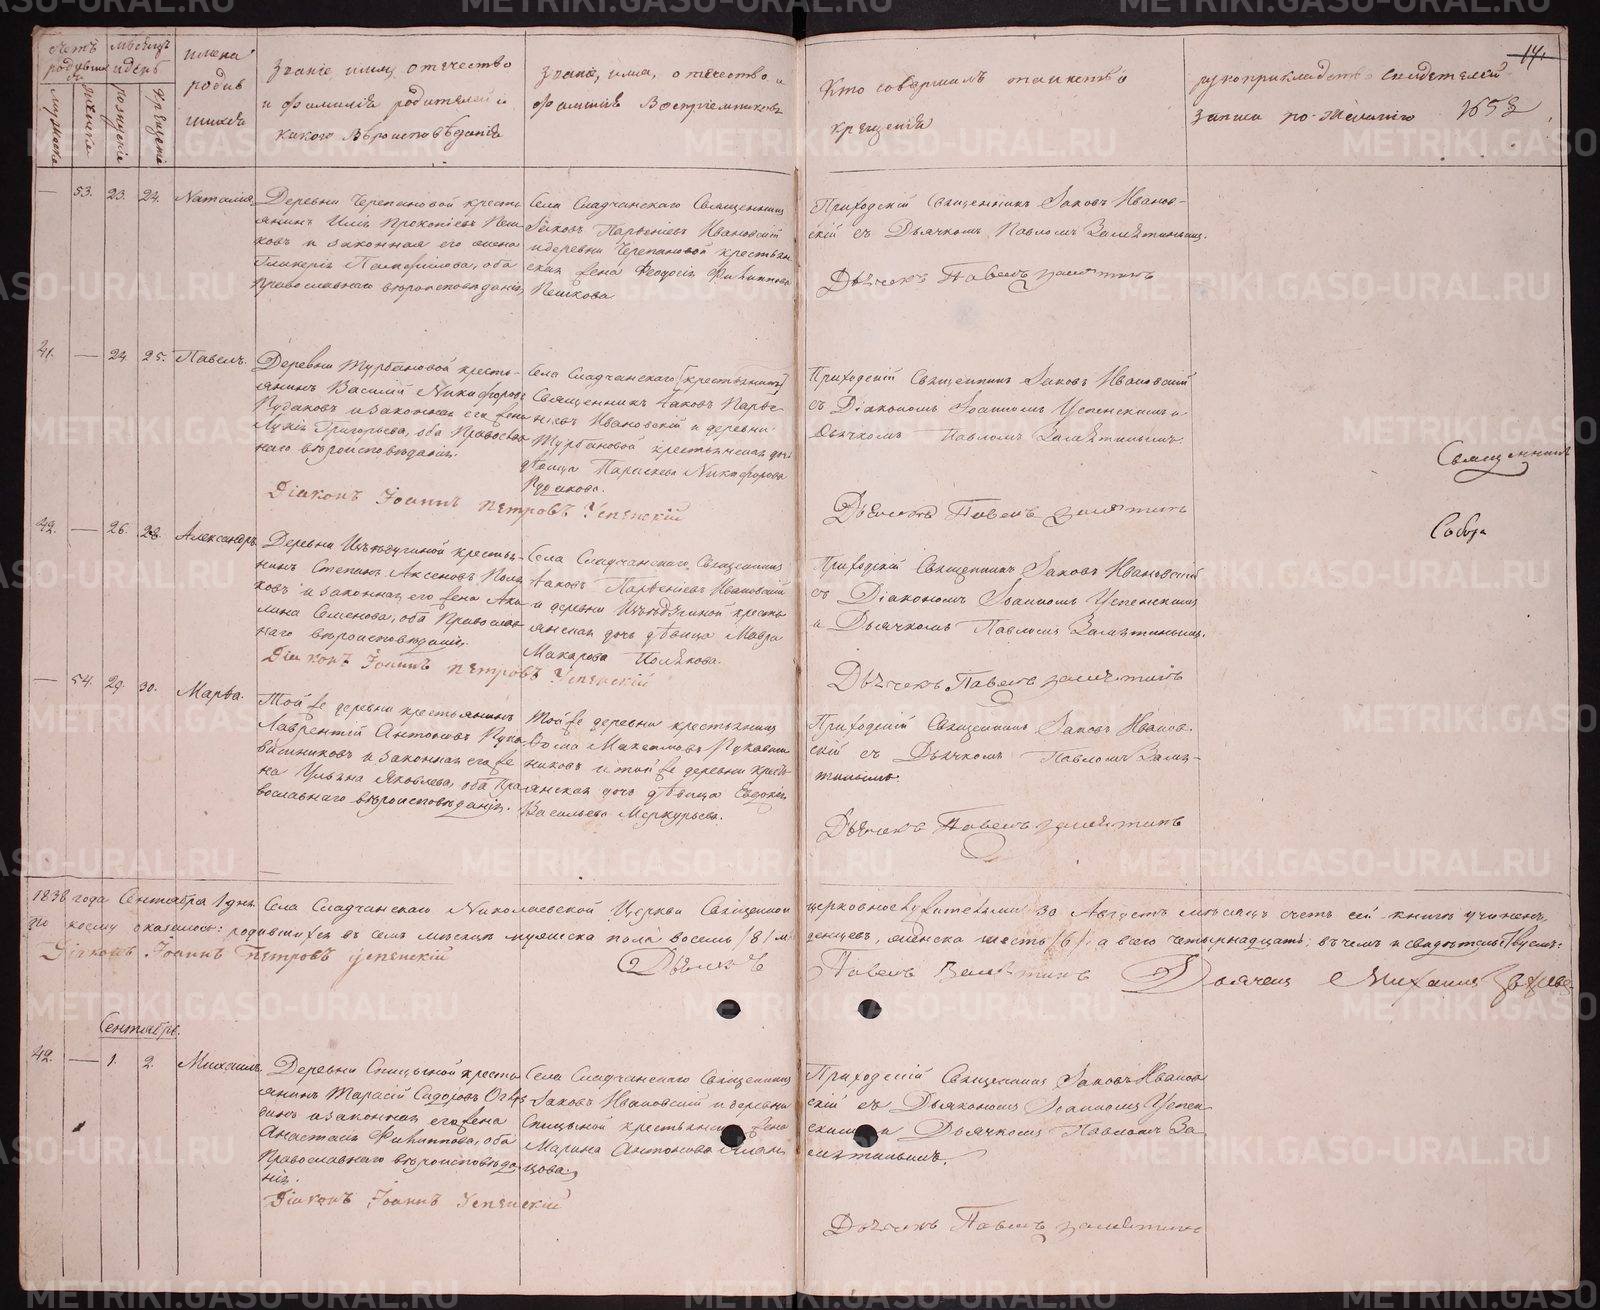 Счетъ родившихся
мѣсяцъ и день
мужеска
женска
рожденія
крещенія
имена родившихся
Званіе имя, отечество
и фамилія родителей и
какого вѣроисповѣданія
Званіе, имя, отечество и
фамилія восприемниковъ
Кто совершалъ таинство
крещенія
рукоприкладство свидетелей
записи по желанію
53. 23. 24. Наталія
Деревни Черепановой кресть
янинъ Илія Прокопіевъ Пеш
ковъ и законная его жена
Гликерія Памфилова, оба
Православнаго вѣроисповѣданія
Села Сладчанскаго Священникъ
Іаковъ Парфеніевъ Ивановскій
и деревни Черепановой крестьян
ская жена Феодосія Филиппова
Пешкова
Приходскій Священникъ Іаковъ Иванов-
скій съ Дьячкомъ Павломъ Замятинымъ.
Дьячекъ Павелъ Замятинъ
41. — 24. 25. Павелъ.
Деревни Турбановой кресть-
янинъ Василій Никифоровъ
Рудаковъ и законная его жена
Лукія Григорьева, оба Православ
наго вѣроисповѣданія.
Села Сладчанскаго [крестьянинъ]
Священникъ Іаковъ Парфе-
ніевъ Ивановскій и деревни
Турбановой крестьянская дочь
дѣвица Параскева Никифорова
Рудакова.
Приходскій Священникъ Іаковъ Ивановскій
съ Діакономъ Іоанномъ Успенскимъ и
Дьячкомъ Павломъ Замятинымъ.
Священникъ
Діаконъ Іоаннъ Петровъ Успенскій
Дьячекъ Павелъ Замятинъ
42. — 26. 28. Александръ.
крестья-
нинъ Степанъ Аксеновъ Поля
ковъ и законная его жена Аку
лина Семенова, оба Православ
наго вѣроисповѣданія.
Села Сладчанскаго Священникъ
Іаковъ Парфеніевъ Ивановскій
и деревни крестья
янская дочь дѣвица Мавра
Макарова Полякова.
Приходскій Священникъ Іаковъ Ивановскій
съ Діакономъ Іоанномъ Успенскимъ
и Дьячкомъ Павломъ Замятинымъ.
Діаконъ Іоаннъ Петровъ Успенскій
Дьячекъ Павелъ Замятинъ
— 54. 29. 30. Марѳа.
Той же деревни крестьянинъ
Лаврентій Антоновъ Рука
вишниковъ и законная его же
на Ульяна Яковлева, оба Пра
вославнаго вѣроисповѣданія.
Той же деревни крестьянинъ
Ѳома Максимовъ Рукавиш
никовъ и той же деревни кресть
янская дочь дѣвица Евдокія
Васильева Меркурьева.
Приходскій Священникъ Іаковъ Иванов-
скій съ Дьячкомъ Павломъ Замя-
тинымъ.
Дьячекъ Павелъ Замятинъ
1838 года Сентября 1 дня Села Сладчанскаго Николаевской Церкви Священно церковнослужителями за Августъ мѣсяцъ счетъ сей книги учиненъ,
по коему оказалось: родившихся въ семъ мѣсяцѣ мужеска пола восемь /8/ мла денцевъ, женска шесть /6/ а всего четырнадцать; въ чемъ и свидѣтельствуемъ:
Діаконъ Іоаннъ Петровъ Успенскій
Дьячекъ Павелъ Замятинъ
Сентябрь.
42. — 1. 2. Михаилъ.
Деревни Спицыной кресть
янинъ Тарасій Сидоровъ
и законная его жена
Анастасія Филиппова, оба
Православнаго вѣроисповѣда
нія.
Села Сладчанскаго Священникъ
Іаковъ Ивановскій и деревни
Спицыной крестьянская жена
Марина Антонова
Приходскій Священникъ Іаковъ Иванов
скій съ Діакономъ Іоанномъ Успен
скимъ и Дьячкомъ Павломъ За
мятинымъ.
Діаконъ Іоаннъ Успенскій
Дьячекъ Павелъ Замятинъ
METRIKI.GASO-URAL.RU